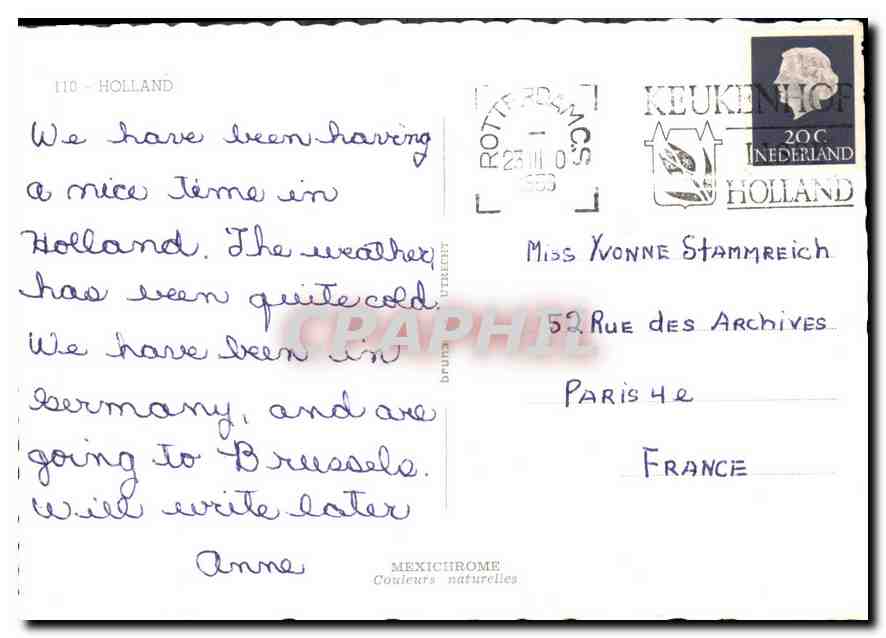 110 - HOLLAND
We have been having
a nice time in
Holland. The weather
has been quite cold.
We have been in
Germany, and are
going to Brussels.
Will write later
Anne
bruna UTRECHT
MEXICHROME
Couleurs naturelles
ROTTERDAM C.S
23 III 0
KEUKENHOF
HOLLAND
20 C
NEDERLAND
Miss Yvonne Stammreich
52 Rue des Archives
Paris 4e
France
CPAPHIL